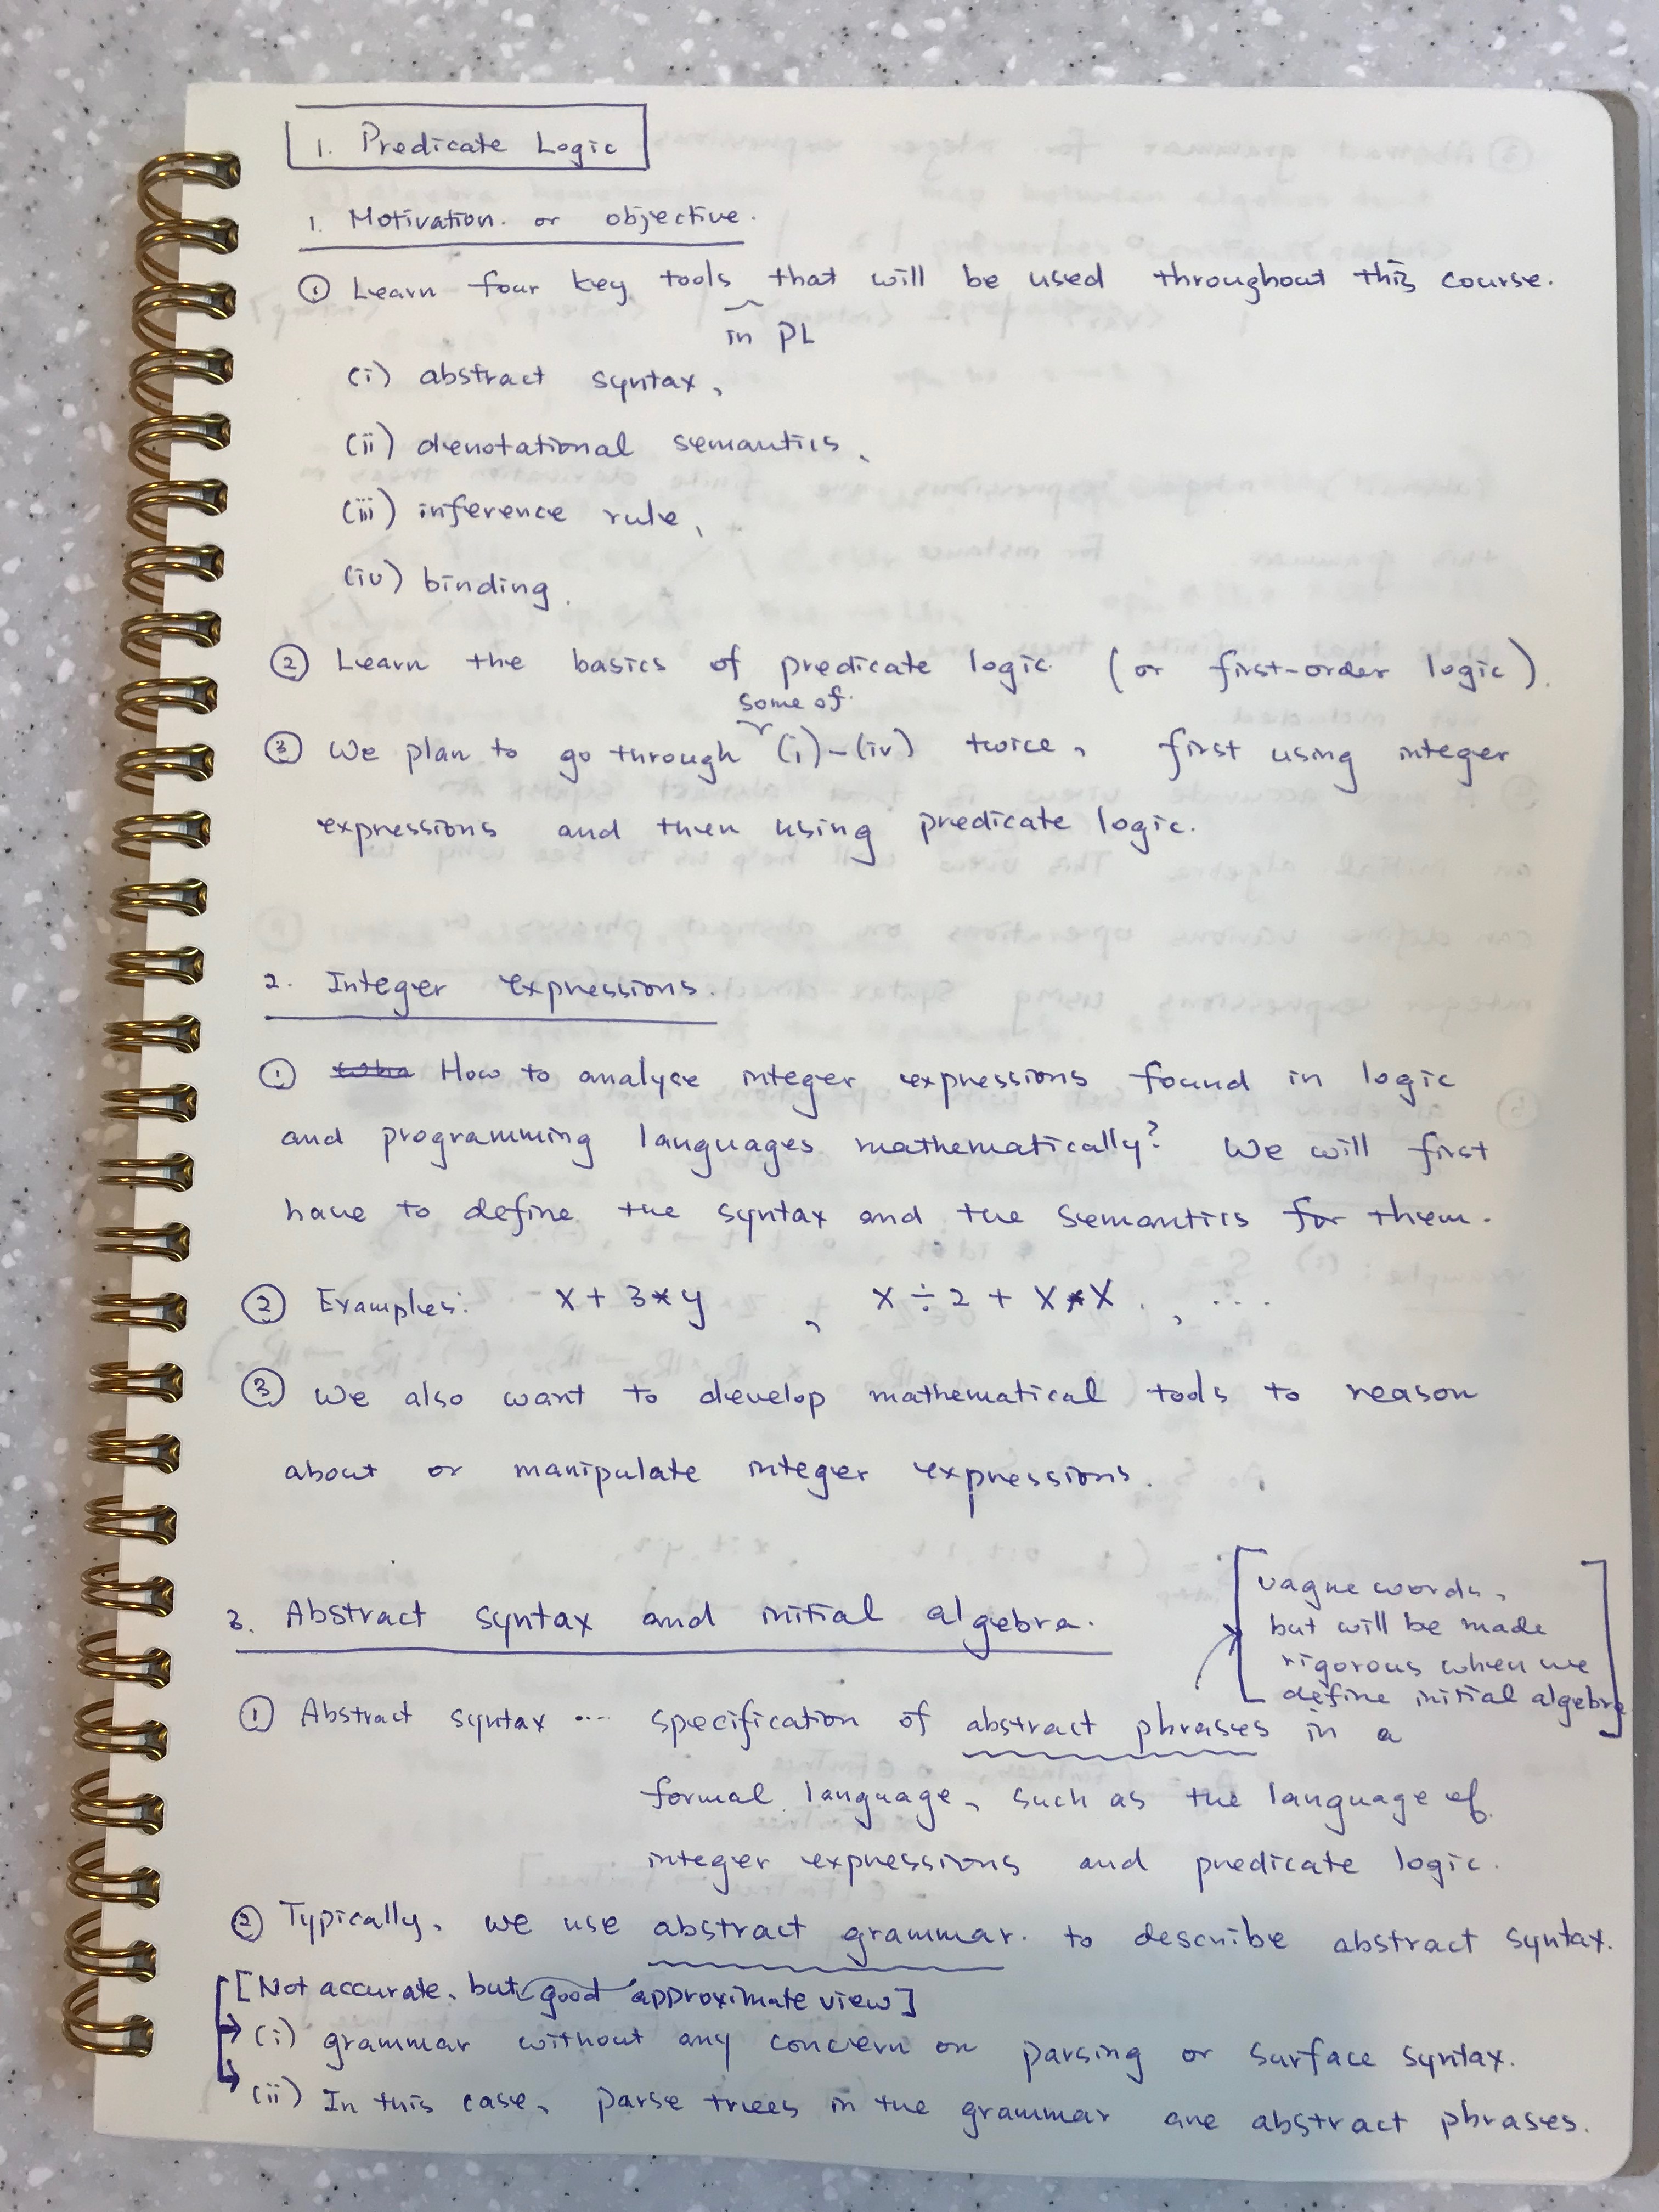 1. Predicate Logic
1. Motivation. or objective.
① Learn four key tools that will be used throughout this course.
in PL
(i) abstract syntax,
(ii) denotational semantics,
(iii) inference rule,
(iv) binding.
② Learn the basics of predicate logic (or first-order logic).
some of
③ We plan to go through (i)-(iv) twice, first using integer
expressions and then using predicate logic.
2. Integer expressions.
① How to analyse integer expressions found in logic
and programming languages mathematically? We will first
have to define the syntax and the semantics for them.
② Examples: x + 3*y , x ÷ 2 + x*x , ...
③ We also want to develop mathematical tools to reason
about or manipulate integer expressions.
3. Abstract syntax and initial algebra.
vague words,
but will be made
rigorous when we
define initial algebra
① Abstract syntax ... specification of abstract phrases in a
formal language, such as the language of
integer expressions and predicate logic.
② Typically, we use abstract grammar to describe abstract syntax.
[Not accurate, but good approximate view]
(i) grammar without any concern on parsing or surface syntax.
(ii) In this case, parse trees in the grammar are abstract phrases.